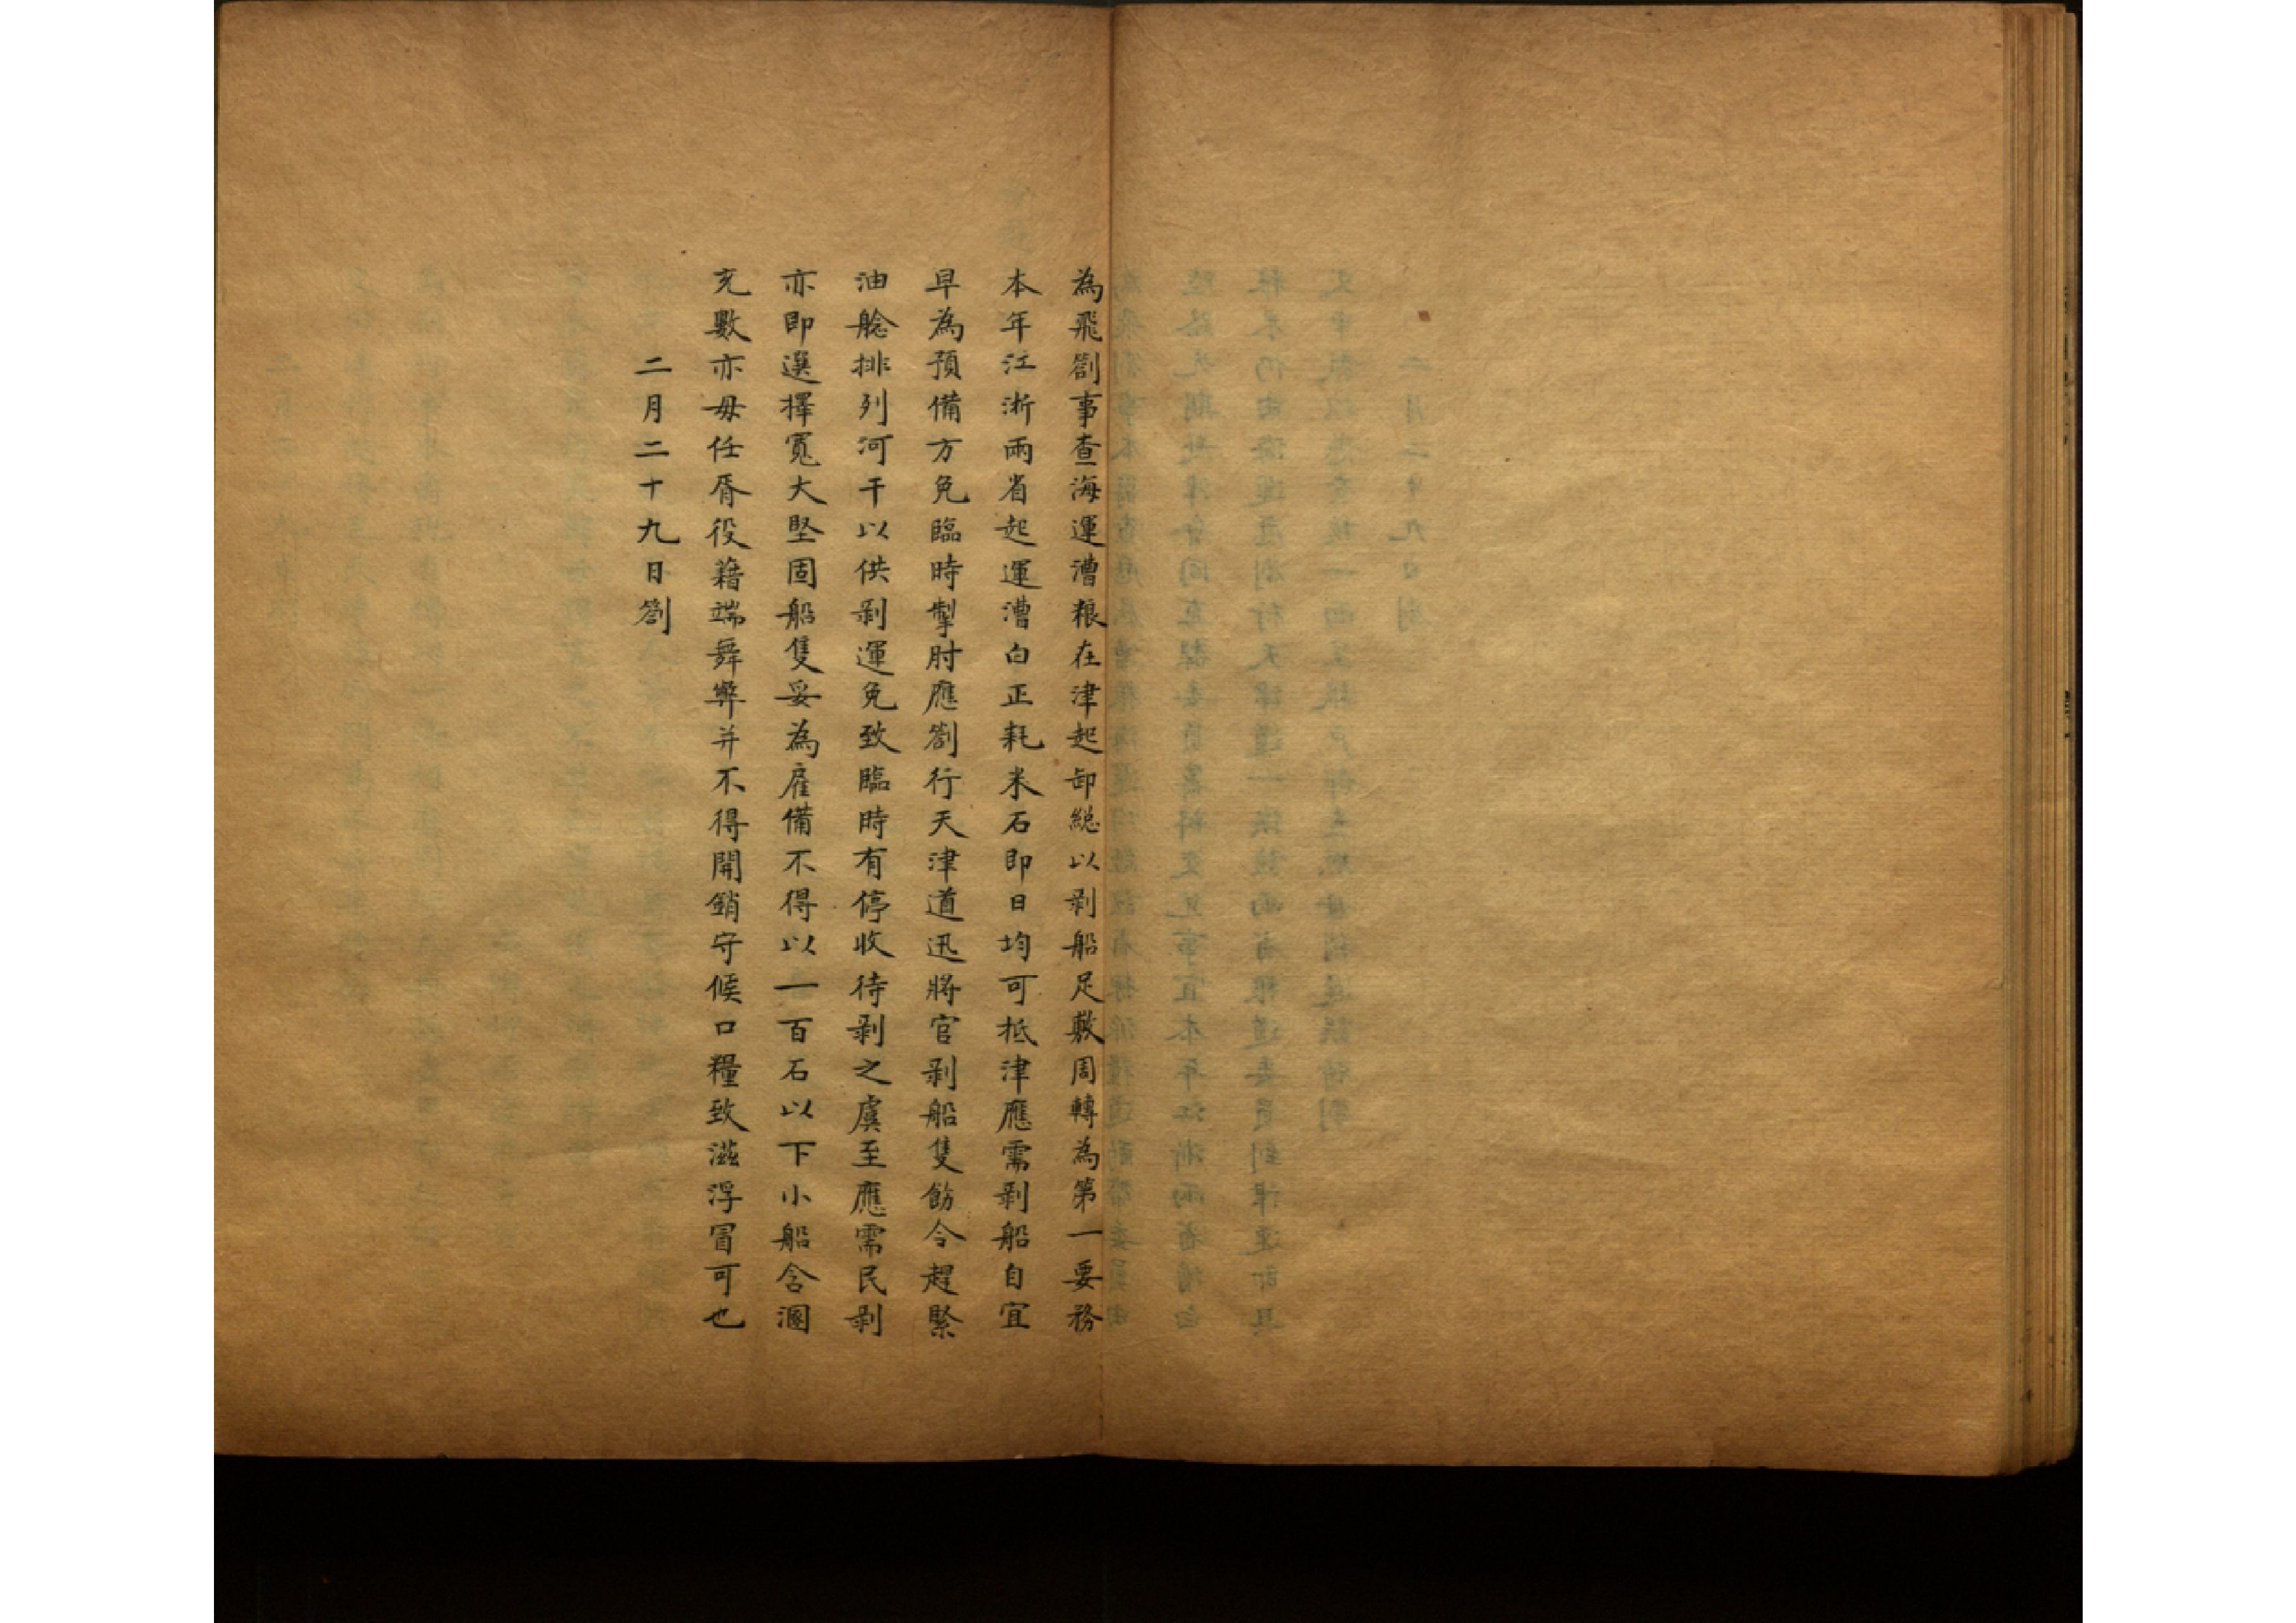 為飛劄事查海運漕粮在津起卸總以剥船足敷周轉為第一要務
本年江浙兩省起運漕白正耗米石即日均可抵津應需剥船自宜
早為預備方免臨時掣肘應劄行天津道迅將官剥船隻飭令趕緊
油艌排列河干以供剥運免致臨時有停收待剥之虞至應需民剥
亦即選擇寬大堅固船隻妥為雇備不得以一百石以下小船含溷
充數亦毋任胥役藉端舞弊并不得開銷守候口糧致滋浮冒可也
二月二十九日劄